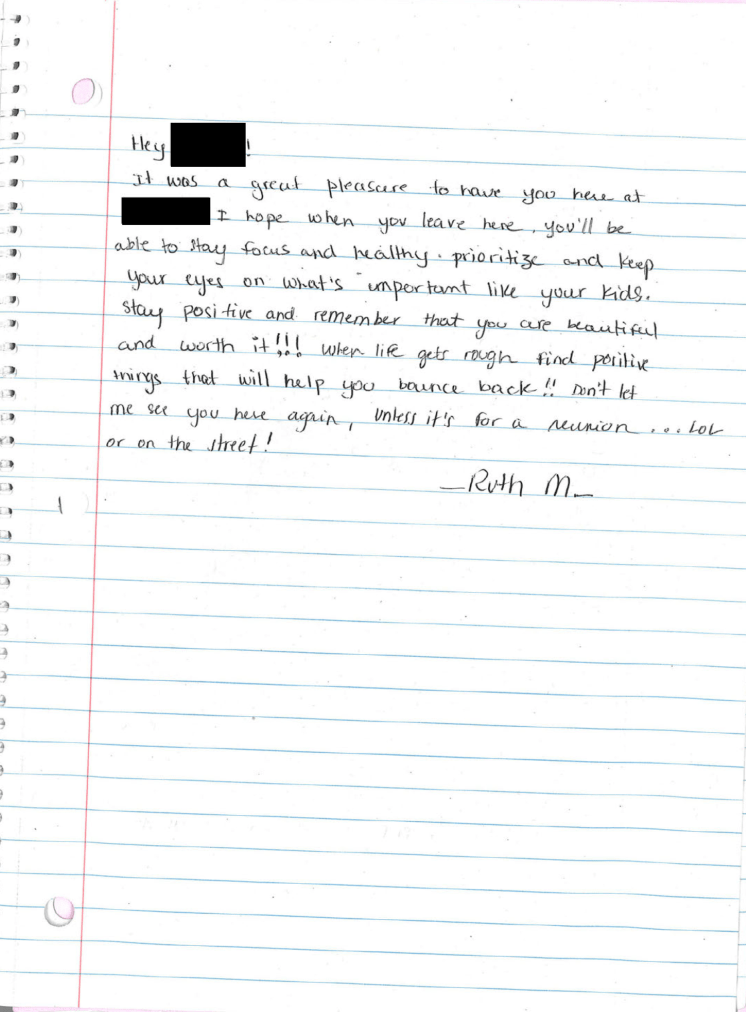 Hey !
It was a great pleasure to have you here at
I hope when you leave here, you'll be
able to stay focus and healthy. prioritize and keep
your eyes on what's important like your kids.
stay positive and remember that you are beautiful
and worth it!!! when life gets rough find positive
things that will help you bounce back!! Don't let
me see you here again, unless it's for a reunion ... LOL
or on the street!
—Ruth M—